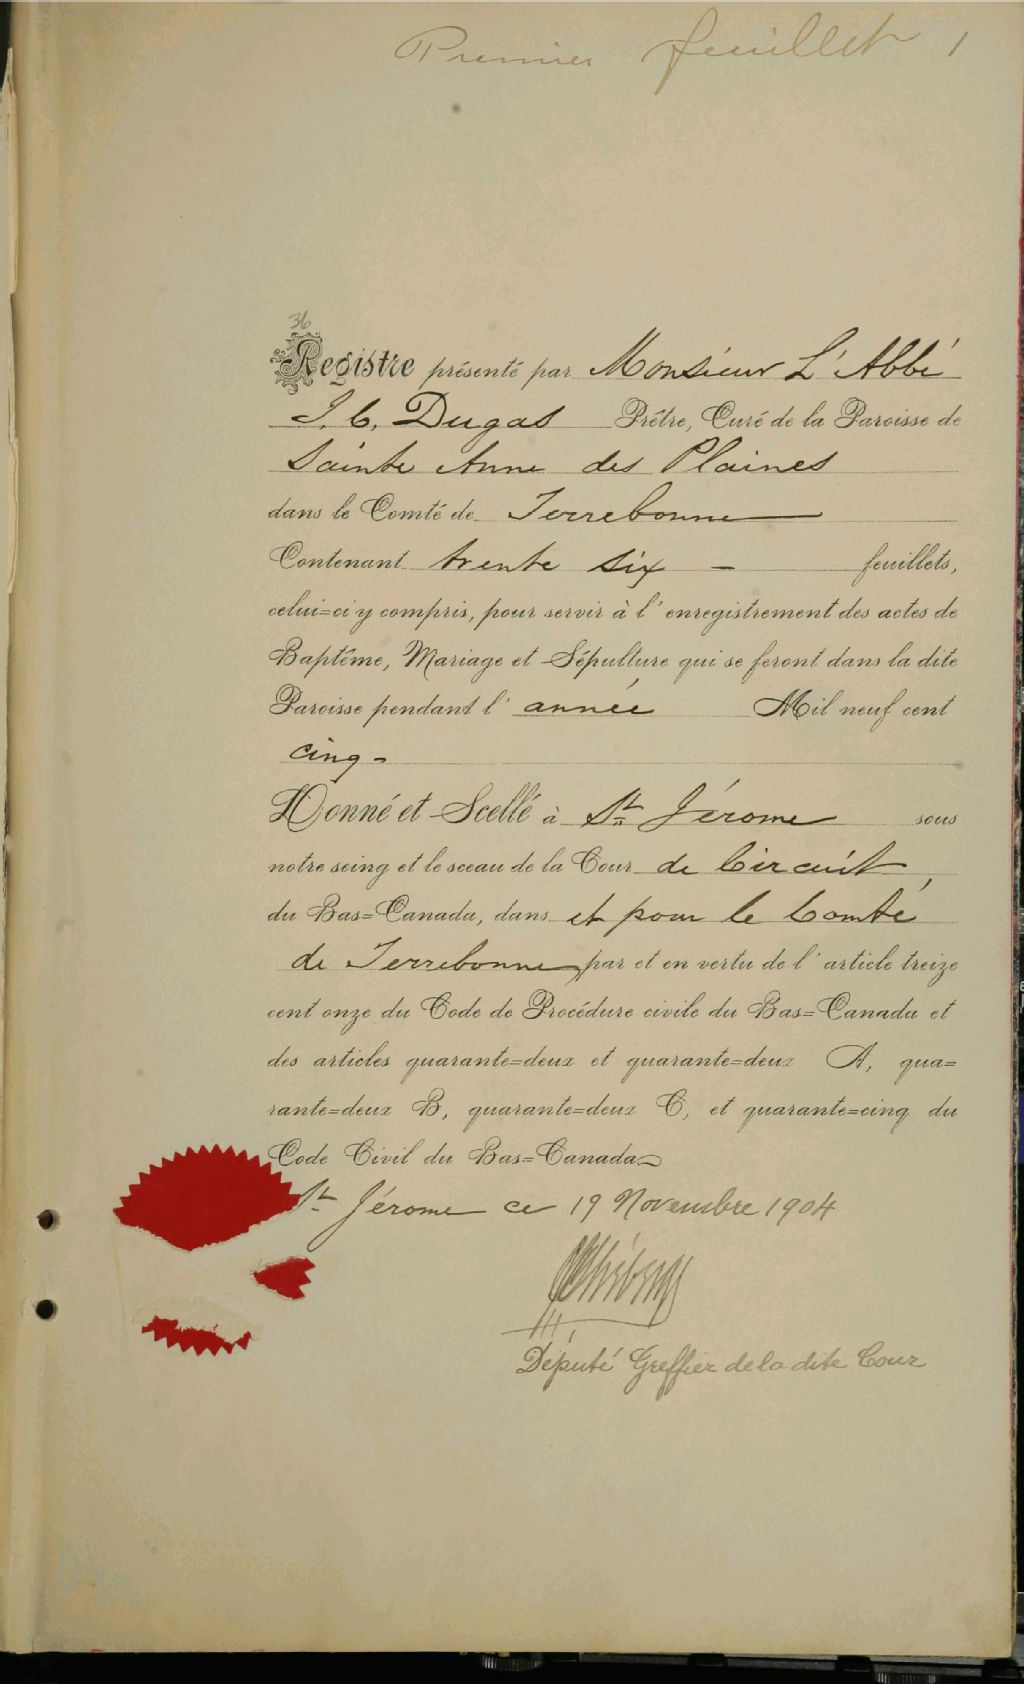 Premier feuillet 1
36
Registre présenté par Monsieur L'Abbé
J. C. Dugas Prêtre, Curé de la Paroisse de
Sainte Anne des Plaines
dans le Comté de Terrebonne
Contenant trente six - feuillets,
celui=ci y compris, pour servir à l'enregistrement des actes de
Baptême, Mariage et Sépulture qui se feront dans la dite
Paroisse pendant l'année Mil neuf cent
cinq -
Donné et Scellé à St Jérome sous
notre seing et le sceau de la Cour de Circuit,
du Bas=Canada, dans et pour le Comté
de Terrebonne par et en vertu de l'article treize
cent onze du Code de Procédure civile du Bas=Canada et
des articles quarante=deux et quarante=deux A, qua=
rante=deux B, quarante=deux C, et quarante=cinq du
Code Civil du Bas=Canada
St Jérome ce 19 Novembre 1904
Député Greffier de la dite Cour